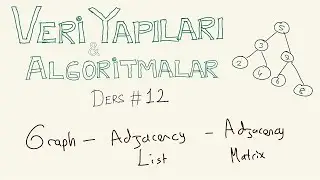 VERİ YAPILARI
&
ALGORİTMALAR
DERS #12
Graph - Adjacency - Adjacency
List Matrix
5
3
2